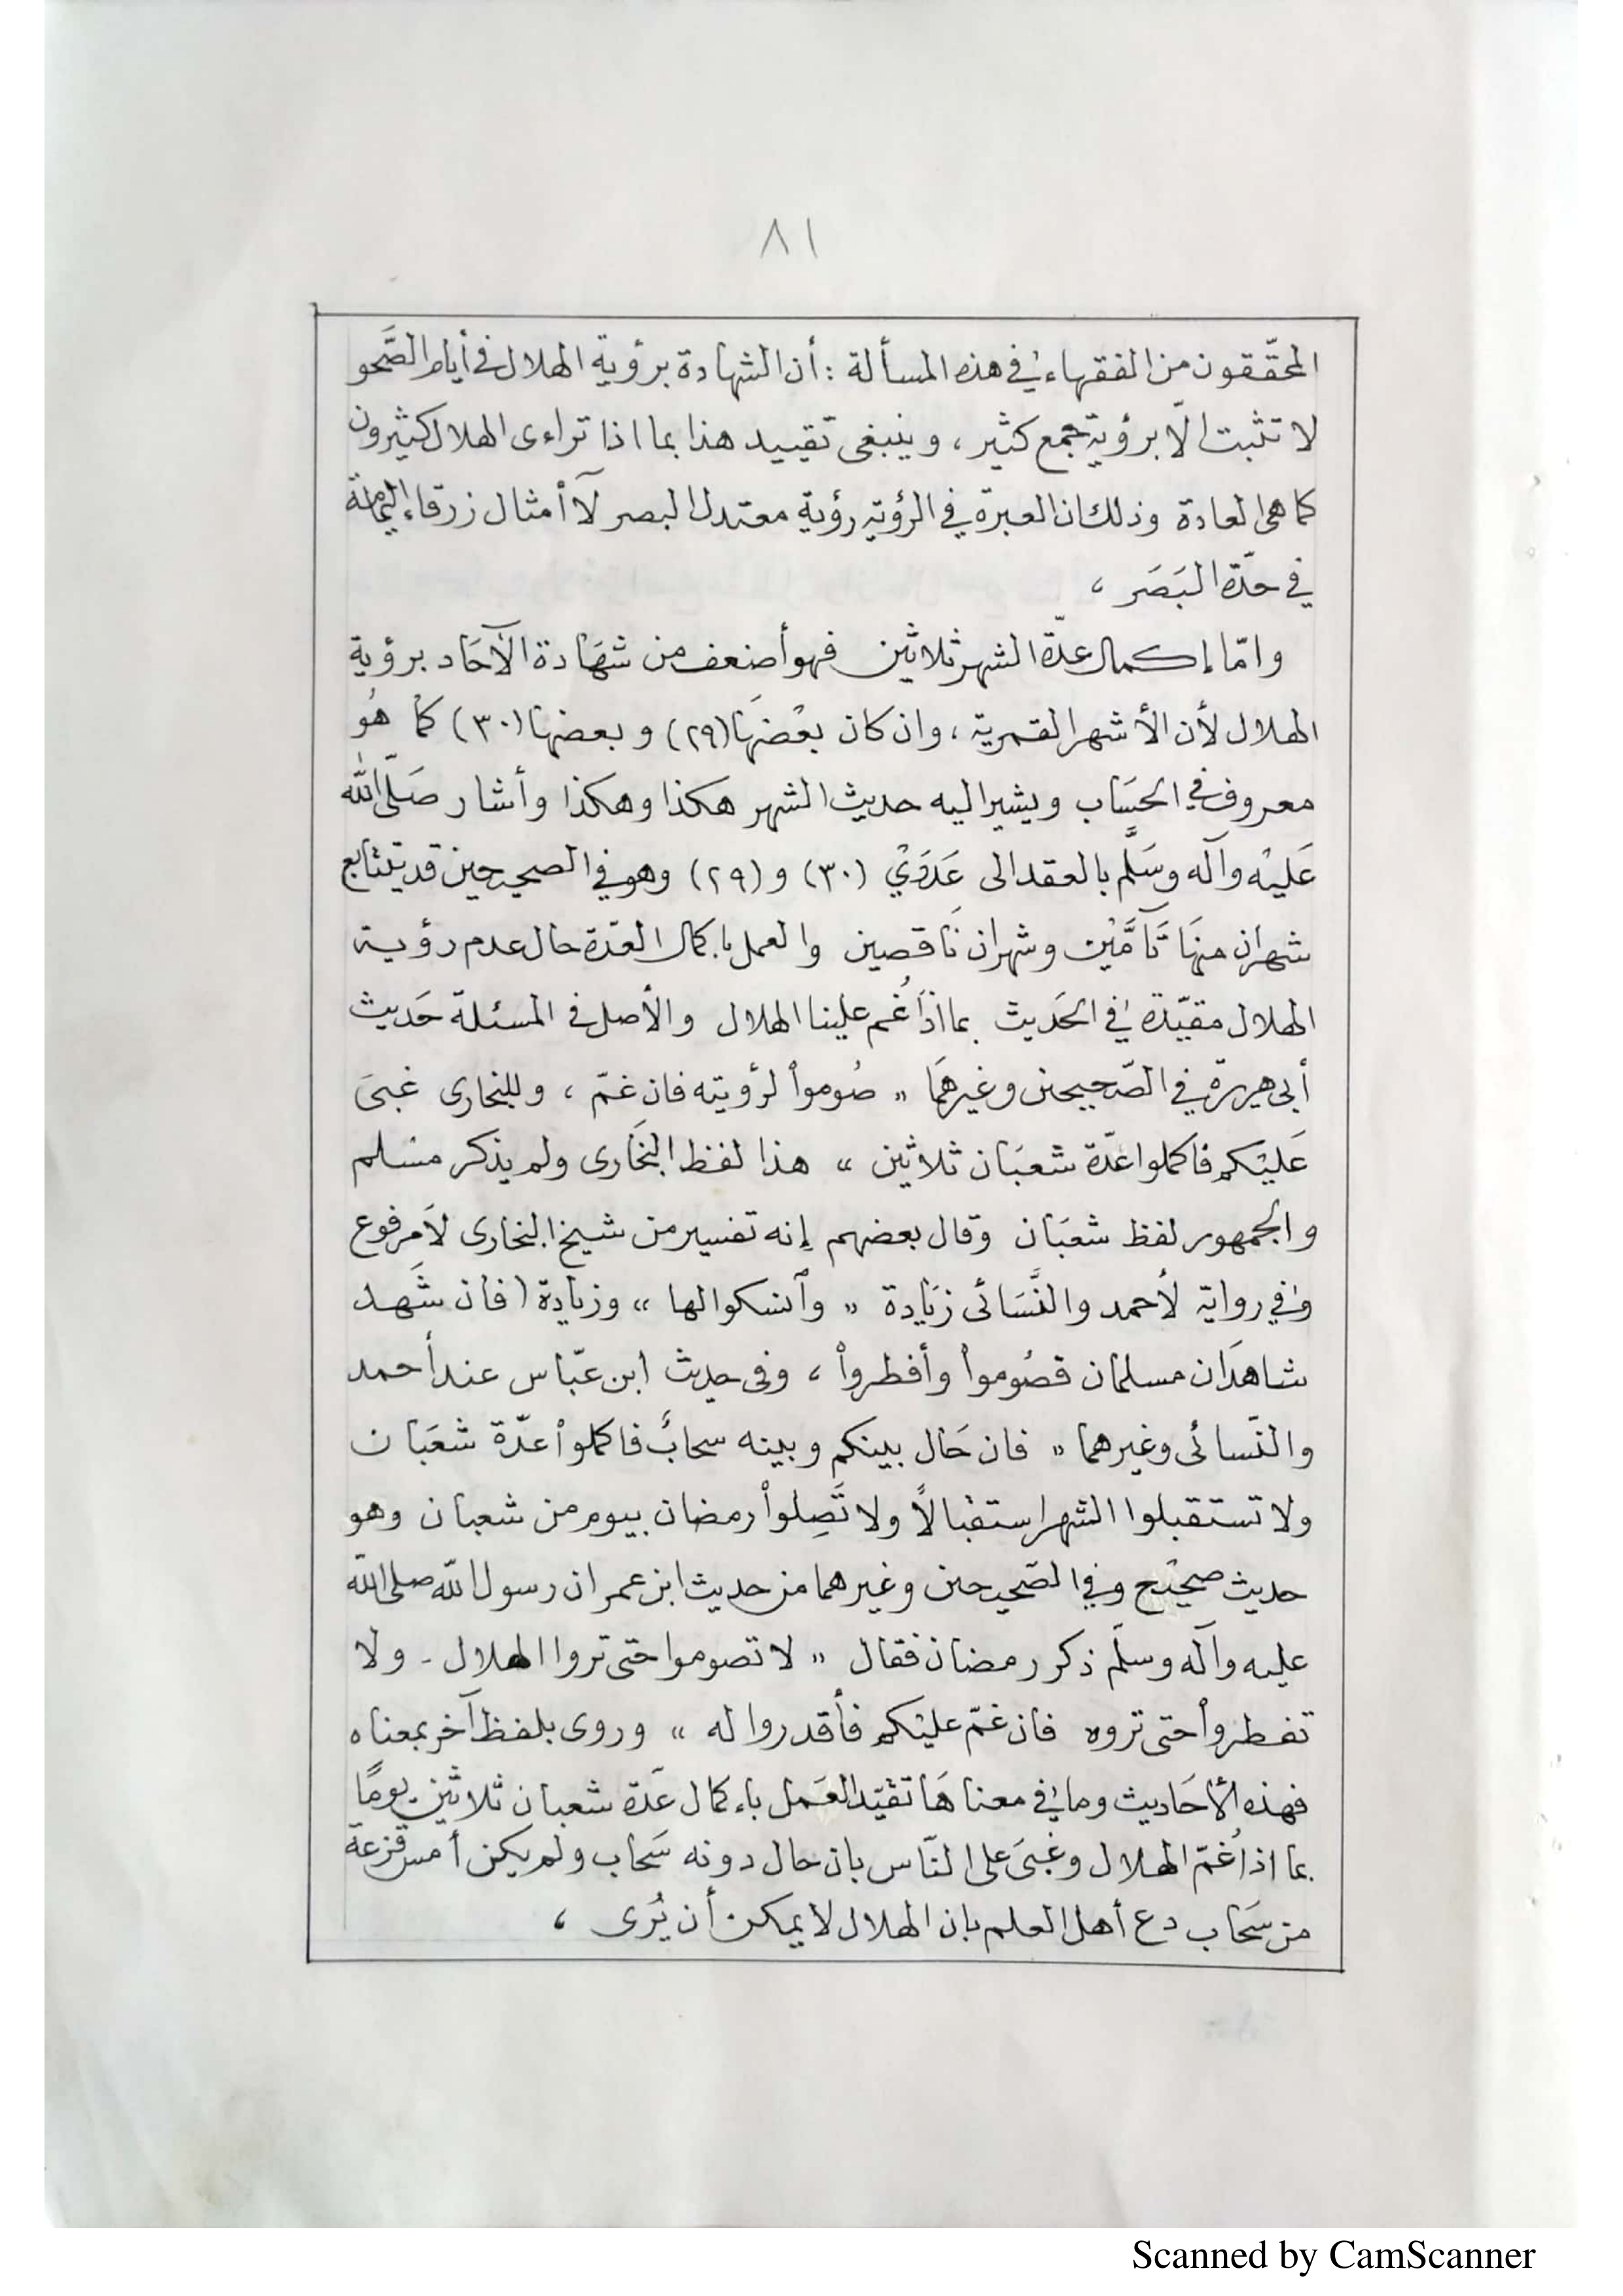 ٨١
المحقّقون من الفقهاء في هذه المسألة : أن الشهادة برؤية الهلال في أيام الصَّحو
لا تثبت الّا برؤية جمع كثير ، وينبغى تقييد هذا بما اذا تراءى الهلال كثيرون
كما هى العادة وذلك ان العبرة في الرؤية رؤية معتدل البصر لآ أمثال زرقاء اليمامة
في حدّة البَصَر ،
وامّا إكمال عدّة الشهر ثلاثين فهو أضعف من شهَادة الآحَاد برؤية
الهلال لأن الأشهر القمرية ، وان كان بعْضهَا (٢٩) وبعضها (٣٠) كما هُو
معروف في الحسَاب ويشير اليه حديث الشهر هكذا وهكذا وأشار صَلّى الله
عَليْه وآله وسَلَّم بالعقد الى عَدَدَيْ (٣٠) و (٢٩) وهو في الصحيحين قد يتتابع
شهران منهَا تَآمَّيْن وشهران نَاقصين والعمل باكمال العدّة حال عدم رؤية
الهلال مقيّدة في الحَديث بما اذَا غُم علينا الهلال والأصل في المسئلة حَديث
أبى هريرة في الصّحيحين وغيرهمَا " صُوموا لرؤيته فان غمّ ، وللبخارى غبىَ
عَليْكم فاكملوا عدّة شعبَان ثلاثين " هذا لفظ البخَارى ولم يذكر مسْلم
والجمهور لفظ شعبَان وقال بعضهم إنه تفسير من شيخ البخارى لآ مرفوع
وفي رواية لأحمد والنَّسَائى زيَادة " وآنسكوا لها " وزيادة ( فان شَهد
شاهدَان مسلمان فصُوموا وأفطروا ، وفى حديث ابن عبّاس عند أحمد
والنّسائى وغيرهما " فان حَال بينكم وبينه سحابٌ فاكملوا عدّة شعَبان
ولا تستقبلوا الشهر استقبالاً ولا تَصِلوا رمضان بيوم من شعبان وهو
حديث صحيْح وفي الصّحيحين وغيرهما من حديث ابن عمر ان رسول الله صلى الله
عليه وآله وسلّم ذكر رمضان فقال " لا تصوموا حتى تروا الهلال - ولا
تفطروا حتى تروه فان غمّ عليْكم فأقدروا له " وروى بلفظ آخر بمعناه
فهذه الأحَاديث وما في معناهَا تقيّد العَمل باءكمال عدّة شعبان ثلاثين يومًا
بما اذا غُمّ الهلال وغبىَ على النّاس بان حال دونه سَحاب ولم يكن أمس قزعة
من سَحاب دع أهل العلم بان الهلال لا يمكن أن يُرى ،
Scanned by CamScanner